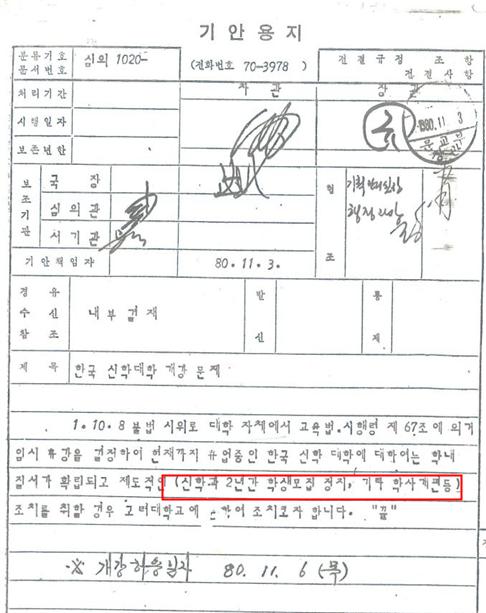 기 안 용 지
분류기호 문서번호 심의 1020- (전화번호 70-3978) 전결규정 조 항 전결사항
처리기간 차 관 장 관
시행일자 1980.11. 3
보존년한 문교부
보조기관 국 장 협조 기획관리실장
심의관 행정
서기관
기안책임자 80.11.3.
경유 수신 참조 내부결재 발신 통제
제 목 한국 신학대학 개강 문제
1.10.8 불법 시위로 대학 자체에서 교육법.시행령 제 67조에 의거
임시 휴강을 결정하여 현재까지 휴업중인 한국 신학 대학에 대하여는 학내
질서가 확립되고 제도적인 (신학과 2년간 학생모집 정지, 기타 학사개편등)
조치를 취할 경우 하여 조치코자 합니다. "끝"
※ 개강허용일자 80. 11. 6 (목)